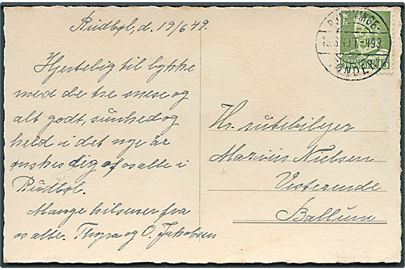 Rudbøl, d. 19/6 49.
Hjertelig til lykke
med de tre mese og
alt godt, sundhed og
held i det nye år
ønskes dig af os alle i
Rudbøl.
Mange hilsener fra
os alle. Thora og C. Jakobsen
Hr. rutebilejer
Marius Nielsen
Vesterende
Ballum